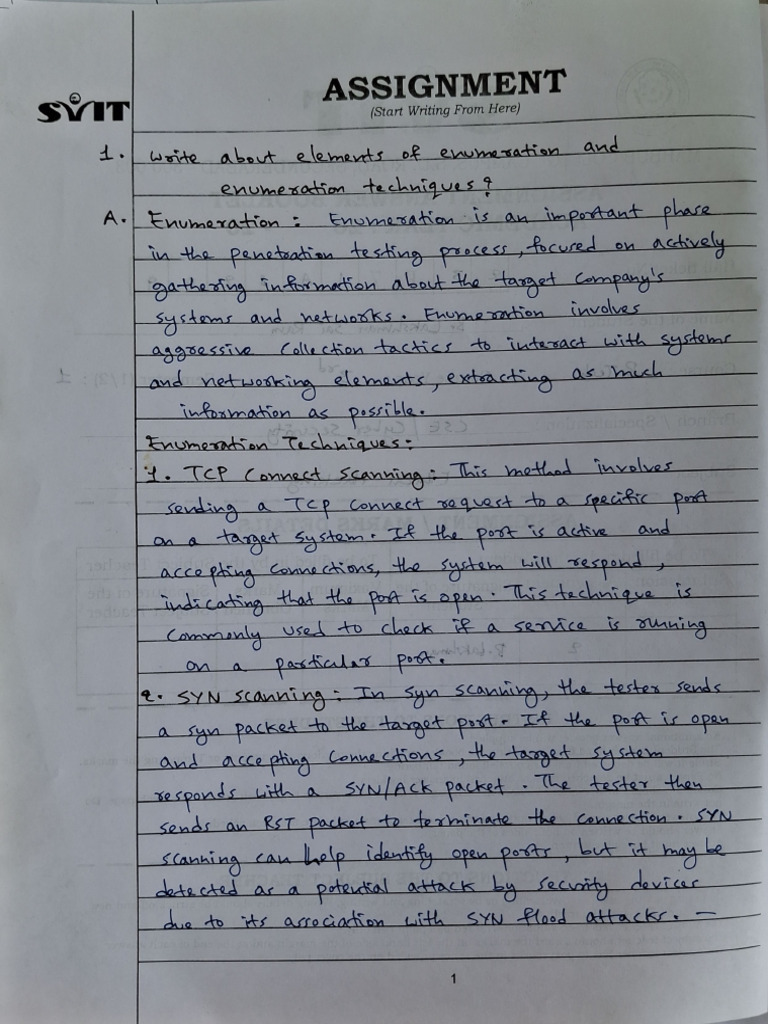 SVIT
ASSIGNMENT
(Start Writing From Here)
1. Write about elements of enumeration and
enumeration techniques?
A. Enumeration: Enumeration is an important phase
in the penetration testing process, focused on actively
gathering information about the target company's
systems and networks. Enumeration involves
aggressive collection tactics to interact with systems
and networking elements, extracting as much
information as possible.
Enumeration Techniques:
1. TCP Connect Scanning: This method involves
sending a TCP connect request to a specific port
on a target system. If the port is active and
accepting connections, the system will respond,
indicating that the port is open. This technique is
commonly used to check if a service is running
on a particular port.
2. SYN scanning: In syn scanning, the tester sends
a syn packet to the target port. If the port is open
and accepting connections, the target system
responds with a SYN/Ack packet. The tester then
sends an RST packet to terminate the connection. SYN
scanning can help identify open ports, but it may be
detected as a potential attack by security devices
due to its association with SYN flood attacks. —
1